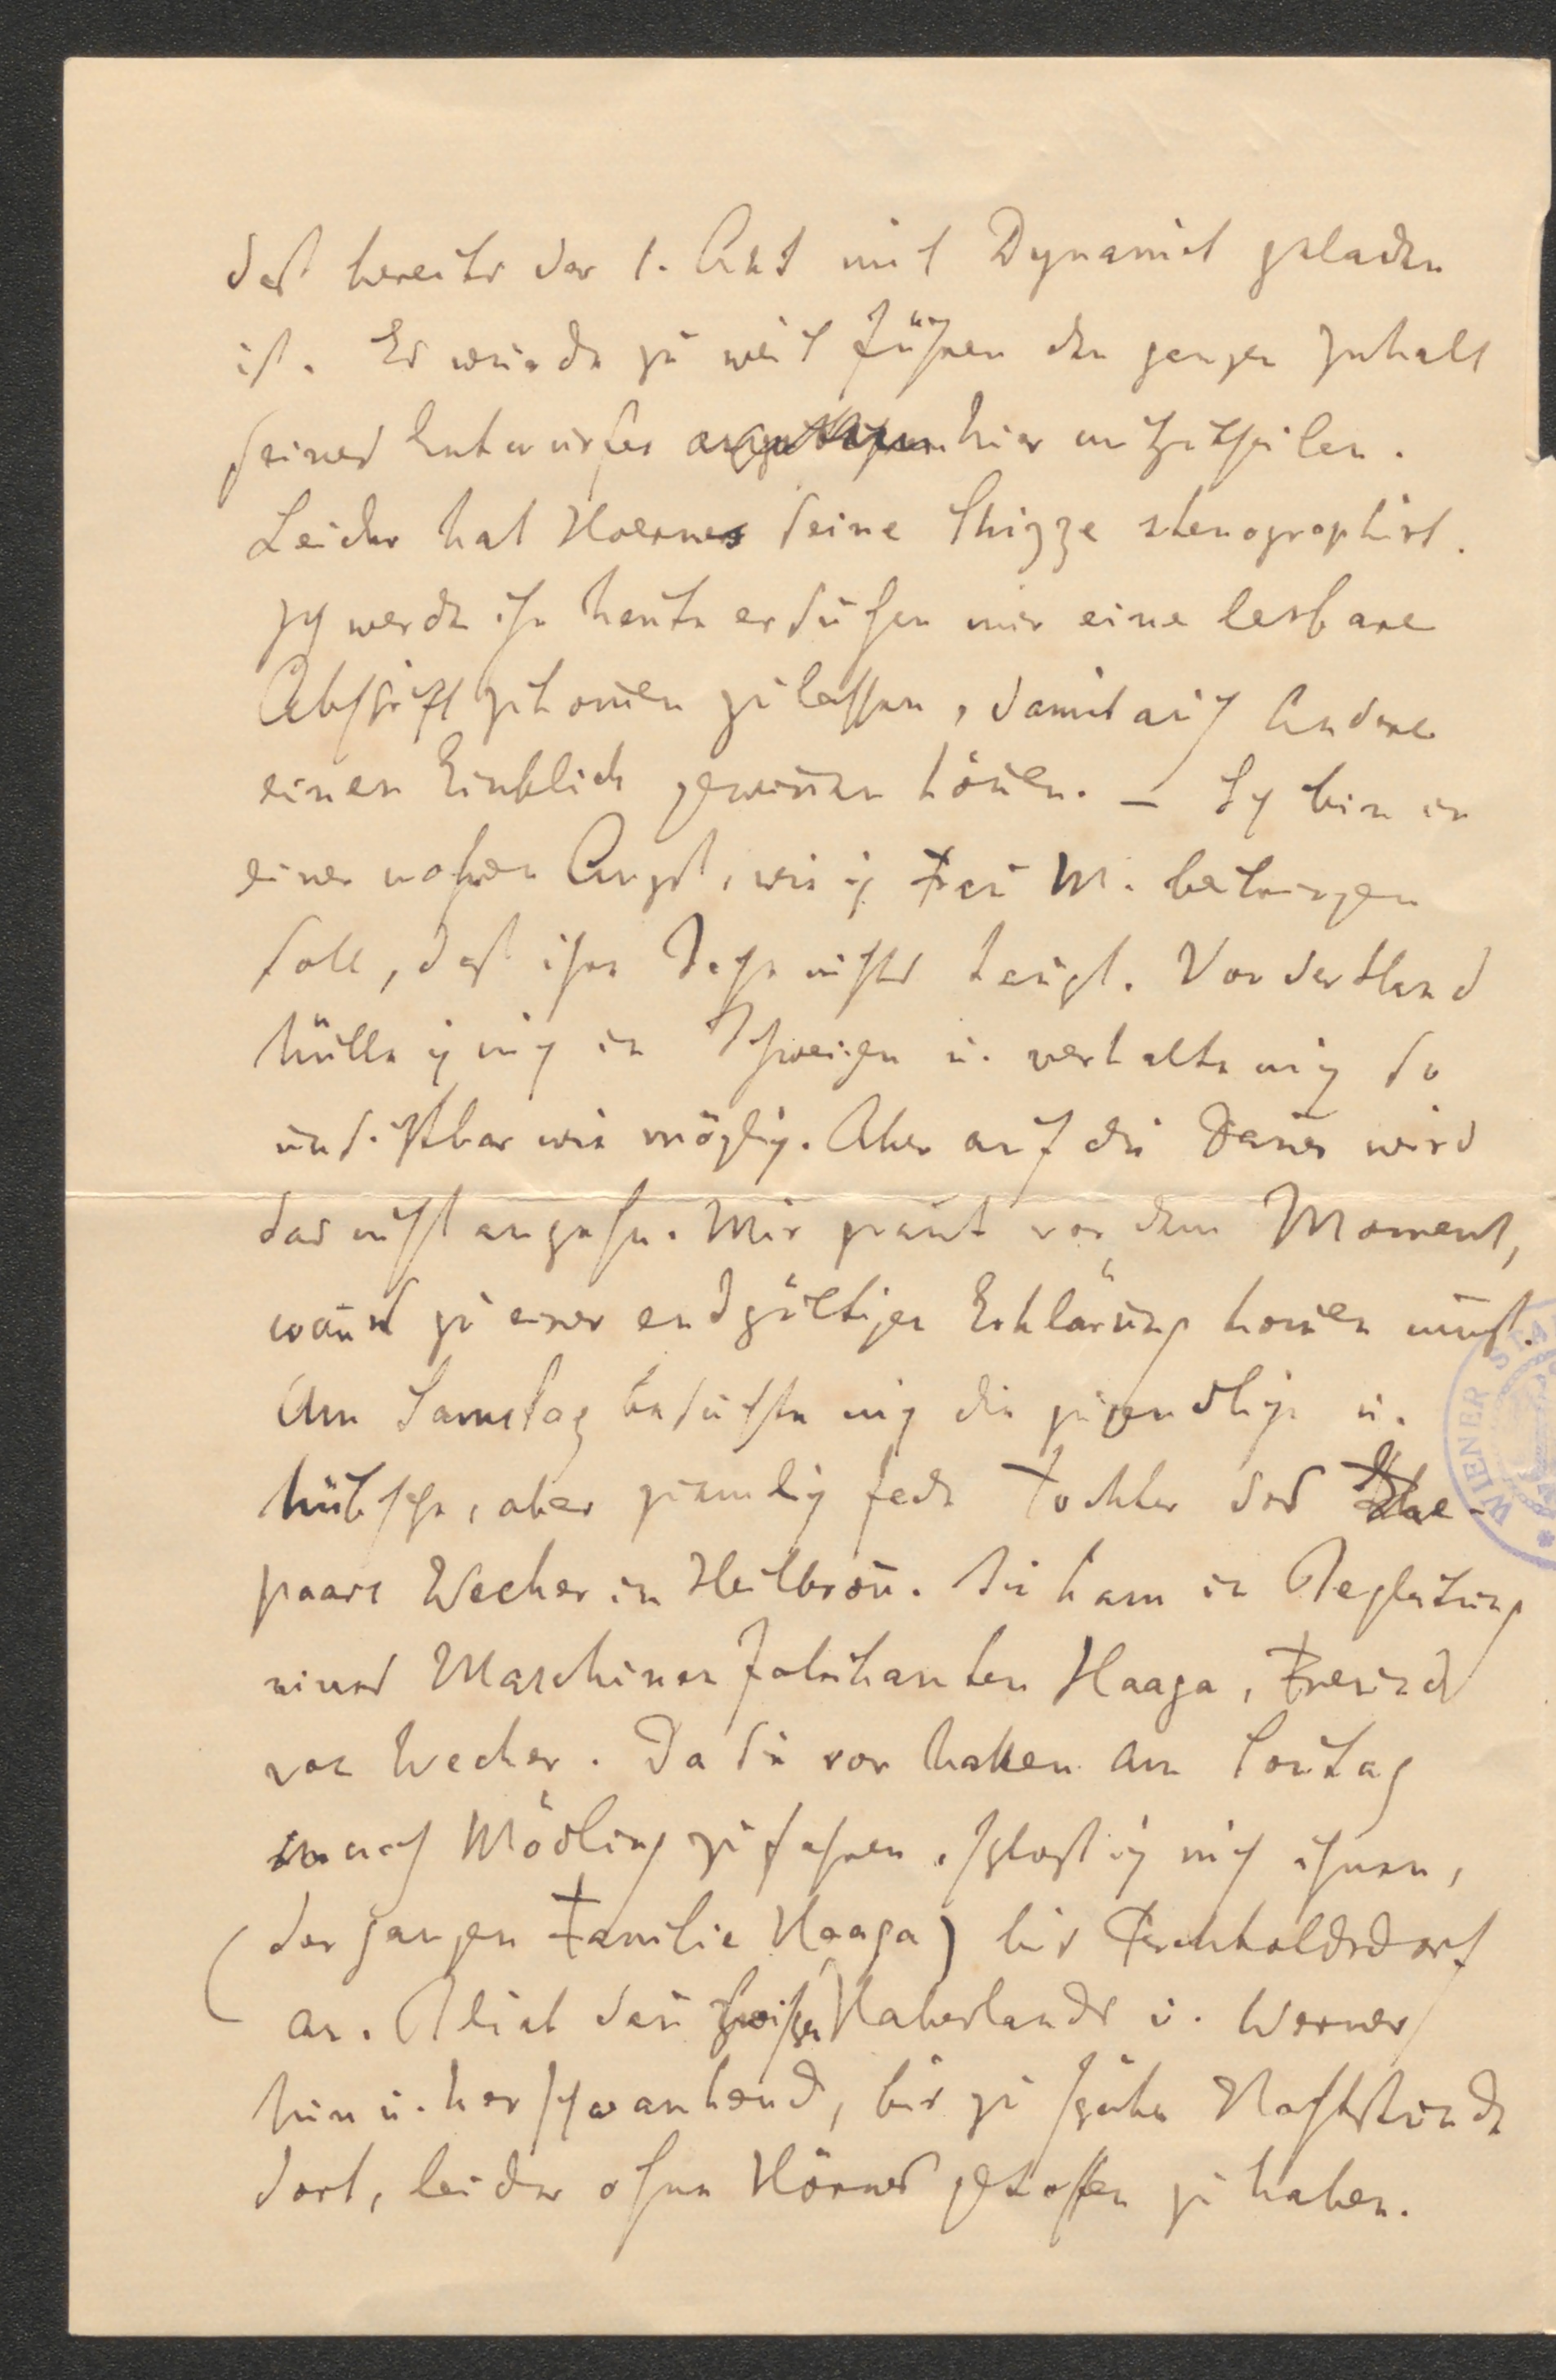 daß bereits der 1. Akt mit Dynamit geladen
ist. Es würde zu weit führen den ganzen Inhalt
seines Entwurfes hier mitzutheilen.
Leider hat Hoernes seine Skizze stenographirt.
Ich werde ihn heute ersuchen mir eine lesbare
Abschrift zukom̅en zu lassen, damit auch Andere
einen Einblick gewin̅en kön̅en. – Ich bin in
einer wahren Angst, wie ich Frau M. beibringen
soll, daß ihre Sache nichts taugt. Vor der Hand
hülle ich mich in Schweigen u. verhalte mich so
unsichtbar wie möglich. Aber auf die Dauer wird
das nicht angehn. Mir graut vor dem Moment,
wan̅ es zu einer endgültigen Erklärung kom̅en muß.
Am Samstag besuchte mich die jugendliche u.
hübsche, aber ziemlich fade Tochter des Ehe-
paars Wecker in Heilbron̅. Sie kam in Begleitung
eines Maschinenfabrikanten Haaga, Freund
von Wecker. Da sie vor hatten am Son̅tag
nach Mödling zu fahren, schloß ich mich ihnen,
(der ganzen Familie Haaga) bis Perchtoldsdorf
an. Blieb dan̅ zwischen Haberlandt u. Werner
hin u. her schwankend, bis zu später Nachtstunde
dort, leider ohne Hörnes getroffen zu haben.
WIENER STA